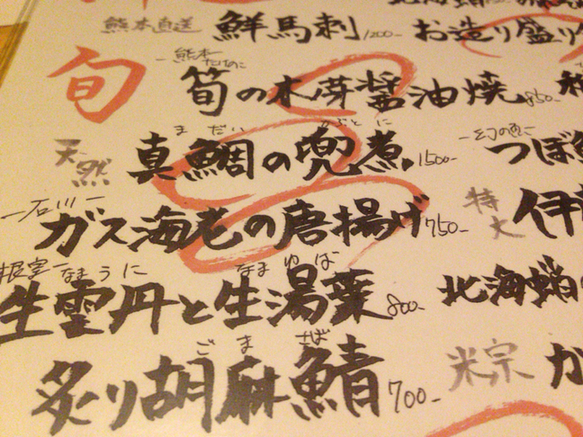 熊本直送 鮮馬刺 1200- お造り盛り
旬
熊本
たけのこ
筍の木芽醤油焼 850-
まだい かぶとに
天然 真鯛の兜煮 1500-
幻の魚
つぼ
石川
ガス海老の唐揚げ 750- 特大 伊
根室 なまうに なまゆば
生雲丹と生湯葉 800- 北海蛸
ごま さば
炙り胡麻鯖 700- 米宗 か